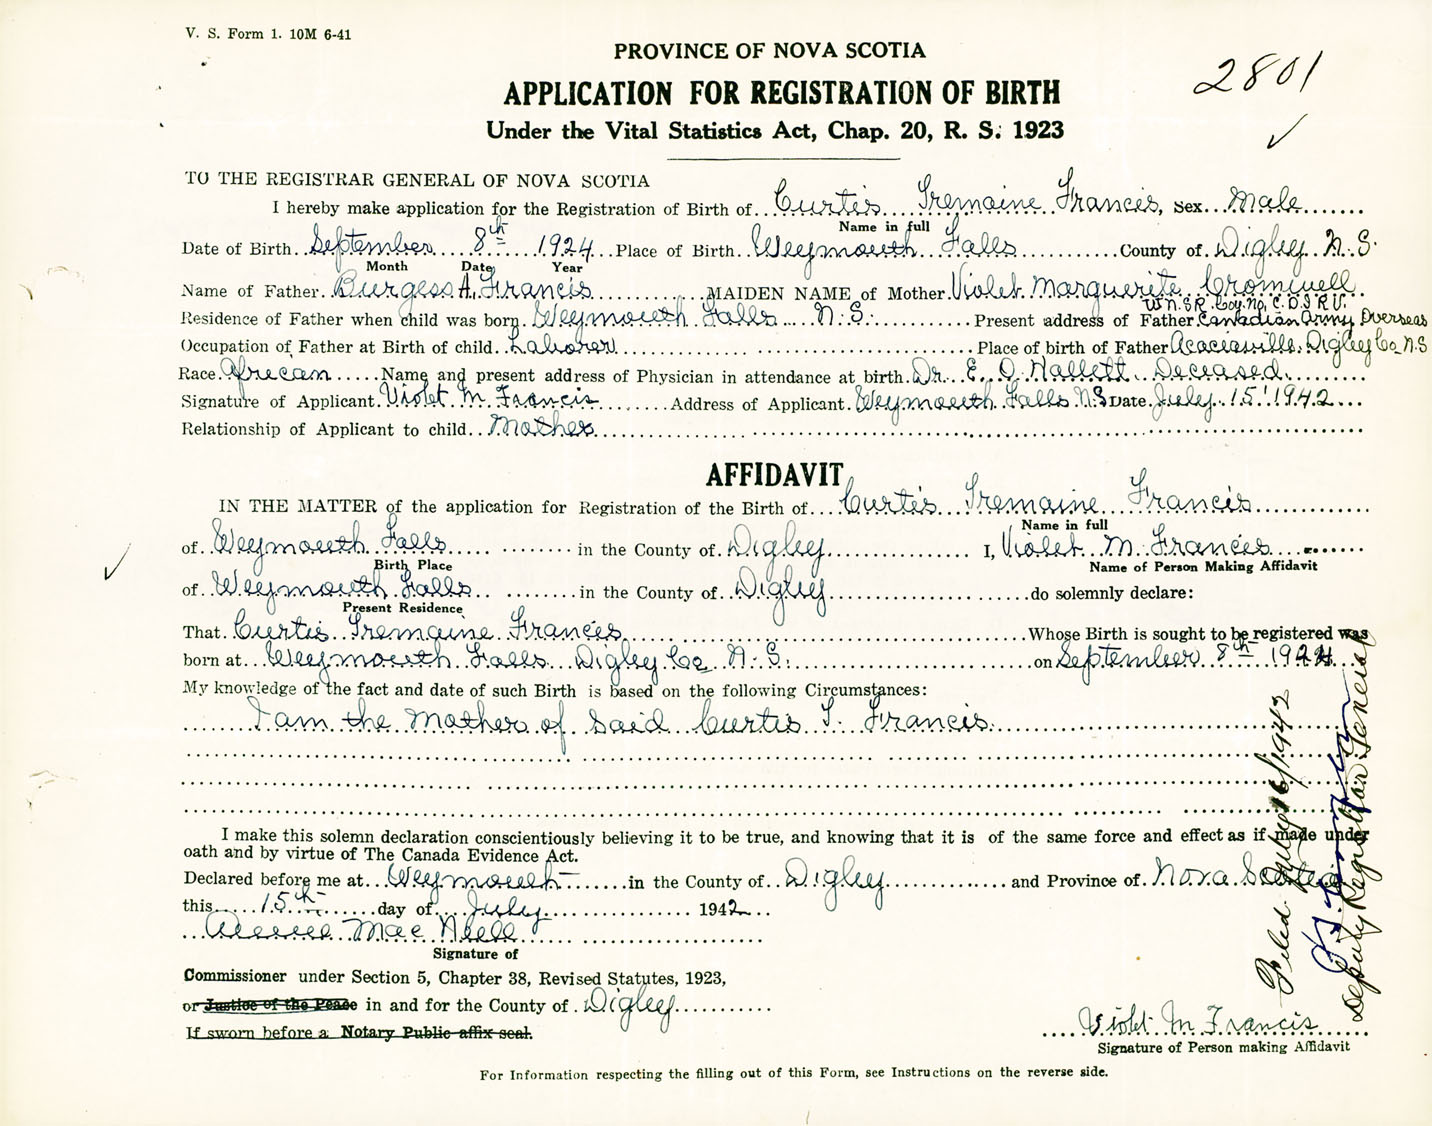 V. S. Form 1. 10M 6-41
PROVINCE OF NOVA SCOTIA
2801
APPLICATION FOR REGISTRATION OF BIRTH
Under the Vital Statistics Act, Chap. 20, R. S. 1923
TO THE REGISTRAR GENERAL OF NOVA SCOTIA
I hereby make application for the Registration of Birth of Curtis Tremaine Francis, Sex Male
Name in full
Date of Birth September 8th 1924 Place of Birth Weymouth Falls County of Digby N.S.
Month Date Year
Name of Father Burgess A. Francis MAIDEN NAME of Mother Violet Marguerite Cromwell
Residence of Father when child was born Weymouth Falls N.S. Present address of Father Canadian Army Overseas
Occupation of Father at Birth of child Laborer Place of birth of Father Acaciaville, Digby Co. N.S
Race African Name and present address of Physician in attendance at birth Dr. E. O. Hallett Deceased
Signature of Applicant Violet M. Francis Address of Applicant Weymouth Falls N.S Date July 15 1942
Relationship of Applicant to child Mother
AFFIDAVIT
IN THE MATTER of the application for Registration of the Birth of Curtis Tremaine Francis
Name in full
of Weymouth Falls in the County of Digby I, Violet M. Francis
Birth Place Name of Person Making Affidavit
of Weymouth Falls in the County of Digby do solemnly declare:
Present Residence
That Curtis Tremaine Francis Whose Birth is sought to be registered was
born at Weymouth Falls Digby Co N.S. on September 8th 1924
My knowledge of the fact and date of such Birth is based on the following Circumstances:
I am the Mother of said Curtis T. Francis.
I make this solemn declaration conscientiously believing it to be true, and knowing that it is of the same force and effect as if made under
oath and by virtue of The Canada Evidence Act.
Declared before me at Weymouth in the County of Digby and Province of Nova Scotia
this 15th day of July 1942
Mac Neill
Signature of
Commissioner under Section 5, Chapter 38, Revised Statutes, 1923,
or Justice of the Peace in and for the County of Digby
If sworn before a Notary Public affix seal.
Violet M Francis
Signature of Person making Affidavit
For Information respecting the filling out of this Form, see Instructions on the reverse side.
Filed July 16/1942
Deputy Registrar General